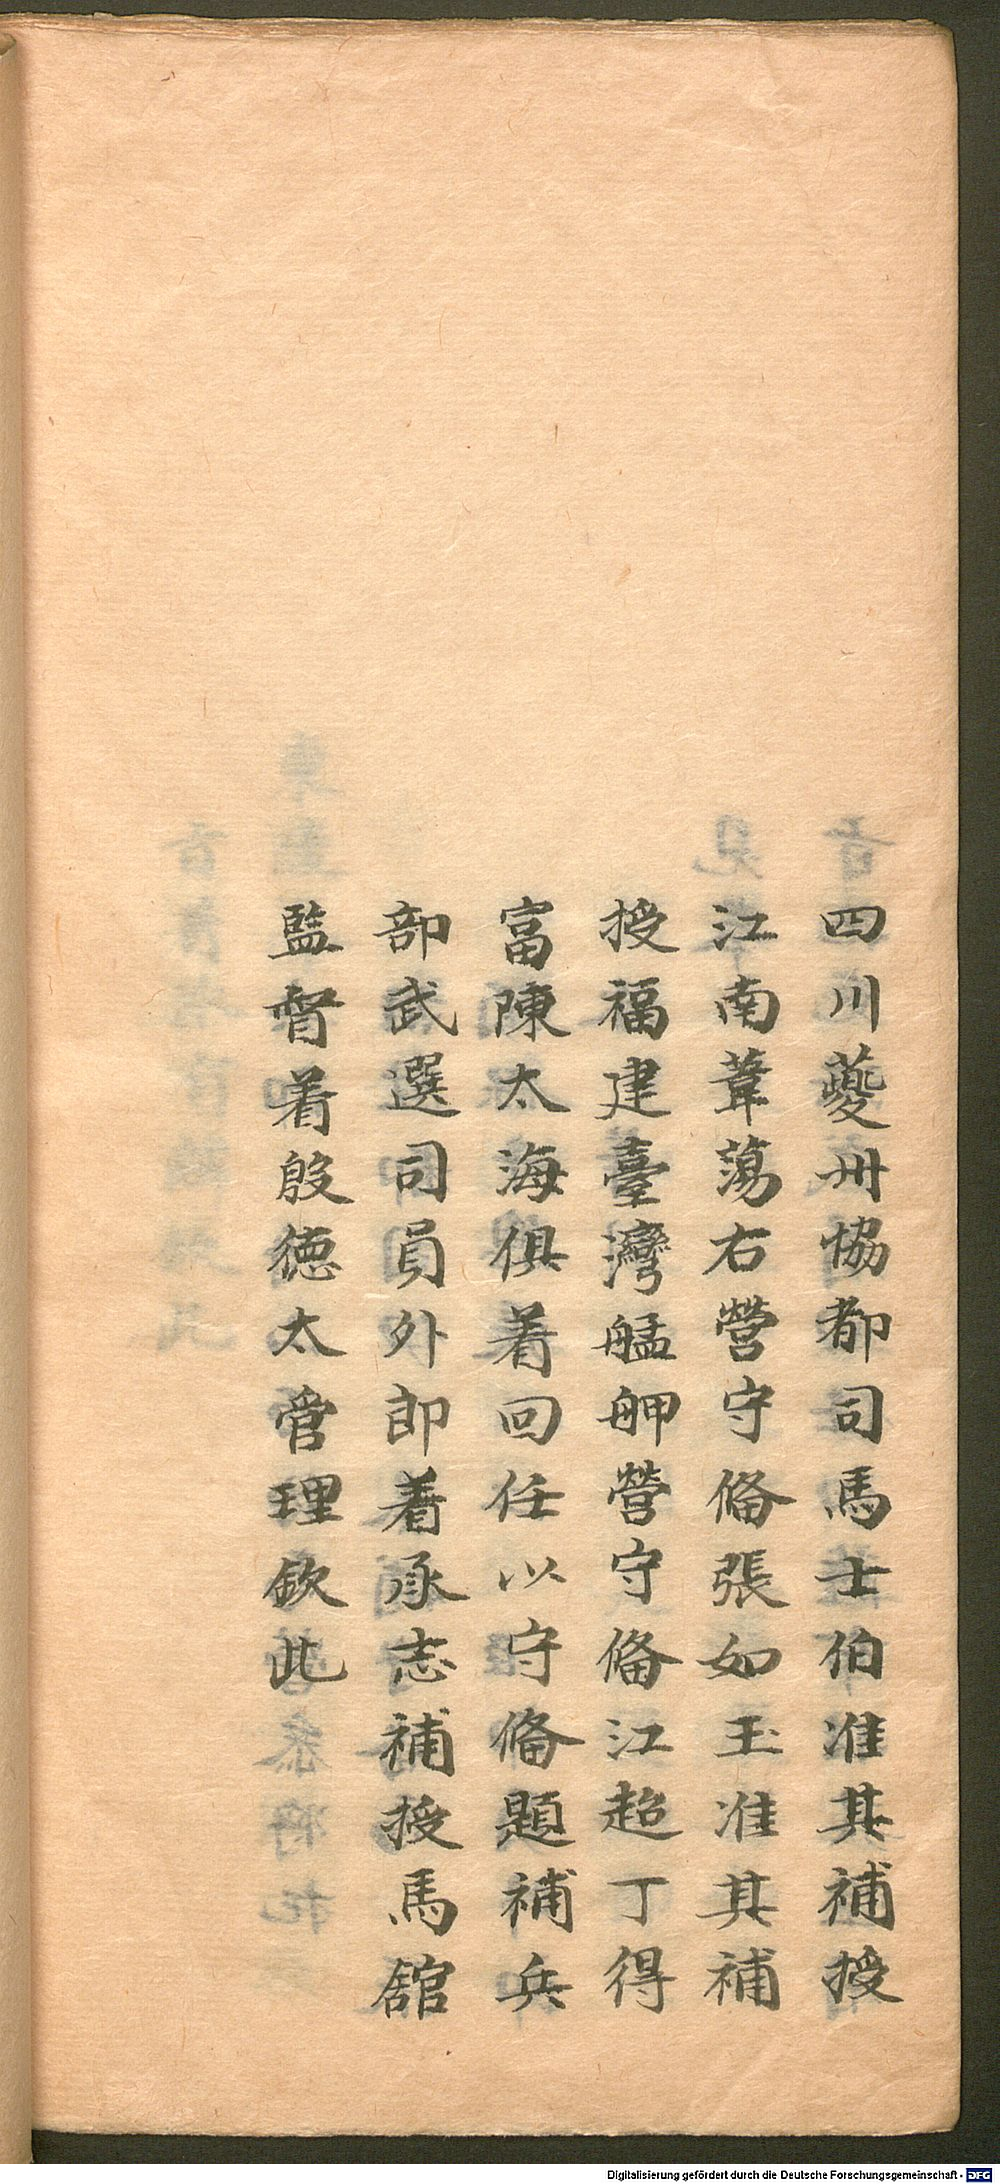 四川夔州協都司馬士伯准其補授
江南葦蕩右營守俻張如玉准其補
授福建臺灣艋舺營守俻江超丁得
富陳太海俱着回任以守俻題補兵
部武選司員外郎着承志補授馬舘
監督着殷德太管理欽此
Digitalisierung gefördert durch die Deutsche Forschungsgemeinschaft - DFG